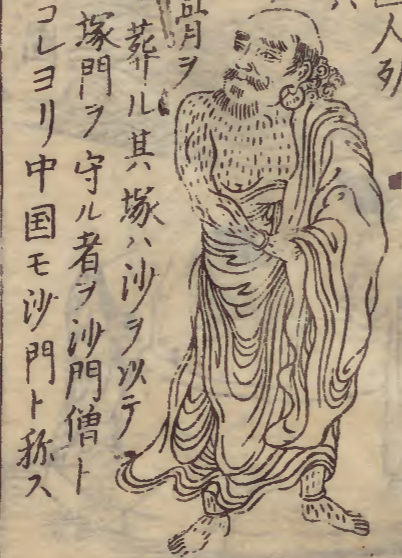 人
ヲ
葬ル其塚ハ沙ヲ以テ
塚門ヲ守ル者ヲ沙門僧ト
コレヨリ中国モ沙門ト称ス